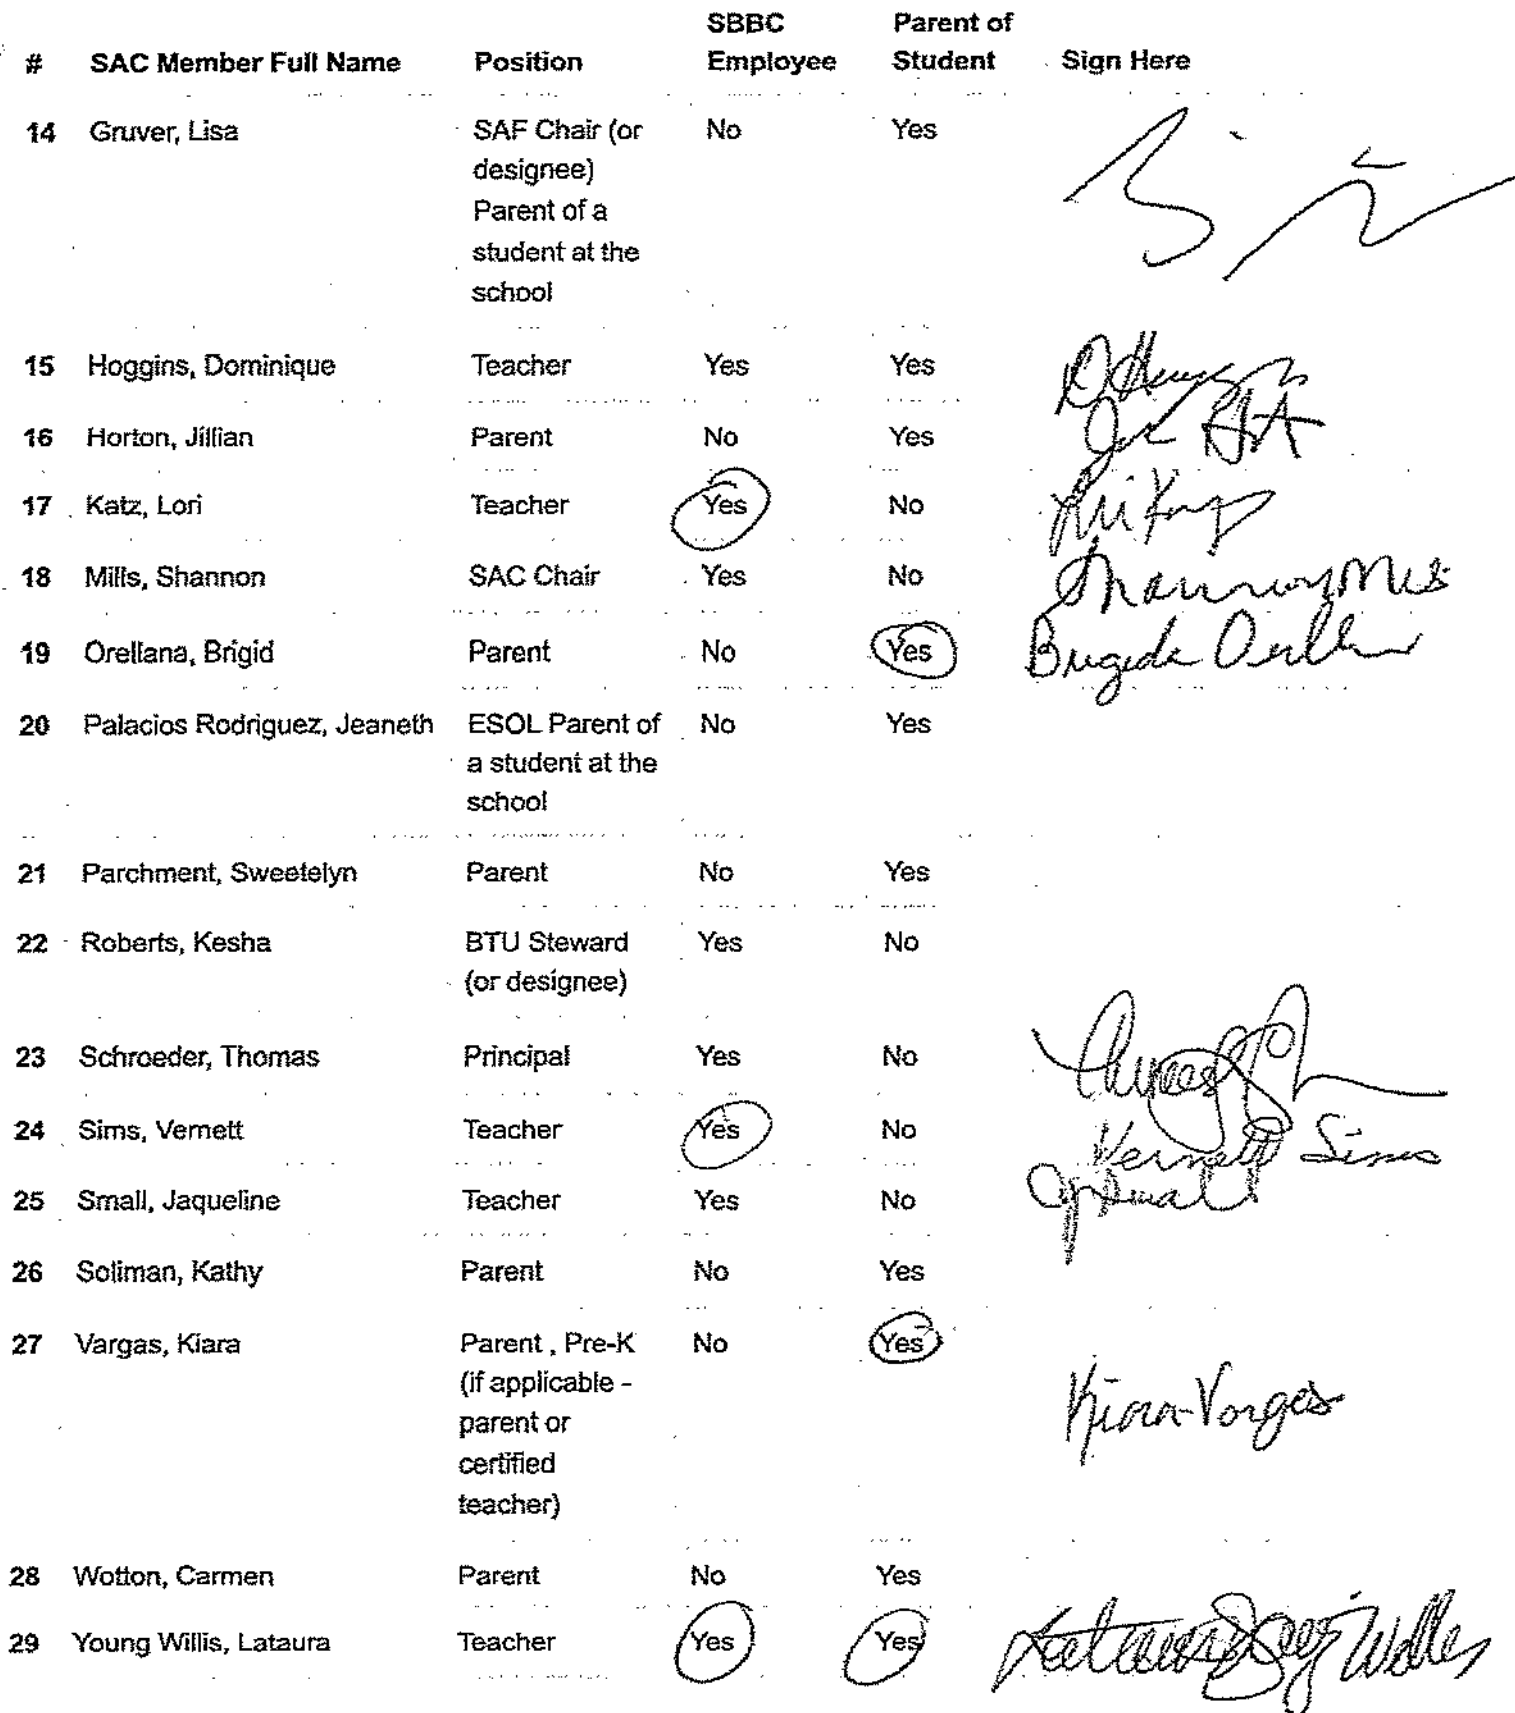 SBBC Parent of
# SAC Member Full Name Position Employee Student Sign Here
14 Gruver, Lisa SAF Chair (or No Yes
designee)
Parent of a
student at the
school
15 Hoggins, Dominique Teacher Yes Yes
16 Horton, Jillian Parent No Yes
17 Katz, Lori Teacher Yes No
18 Mills, Shannon SAC Chair Yes No Shannon Mills
19 Orellana, Brigid Parent No Yes
20 Palacios Rodriguez, Jeaneth ESOL Parent of No Yes
a student at the
school
21 Parchment, Sweetelyn Parent No Yes
22 Roberts, Kesha BTU Steward Yes No
(or designee)
23 Schroeder, Thomas Principal Yes No
24 Sims, Vernett Teacher Yes No Vernett Sims
25 Small, Jaqueline Teacher Yes No
26 Soliman, Kathy Parent No Yes
27 Vargas, Kiara Parent , Pre-K No Yes
(if applicable -
parent or Kiara Vargas
certified
teacher)
28 Wotton, Carmen Parent No Yes
29 Young Willis, Lataura Teacher Yes Yes